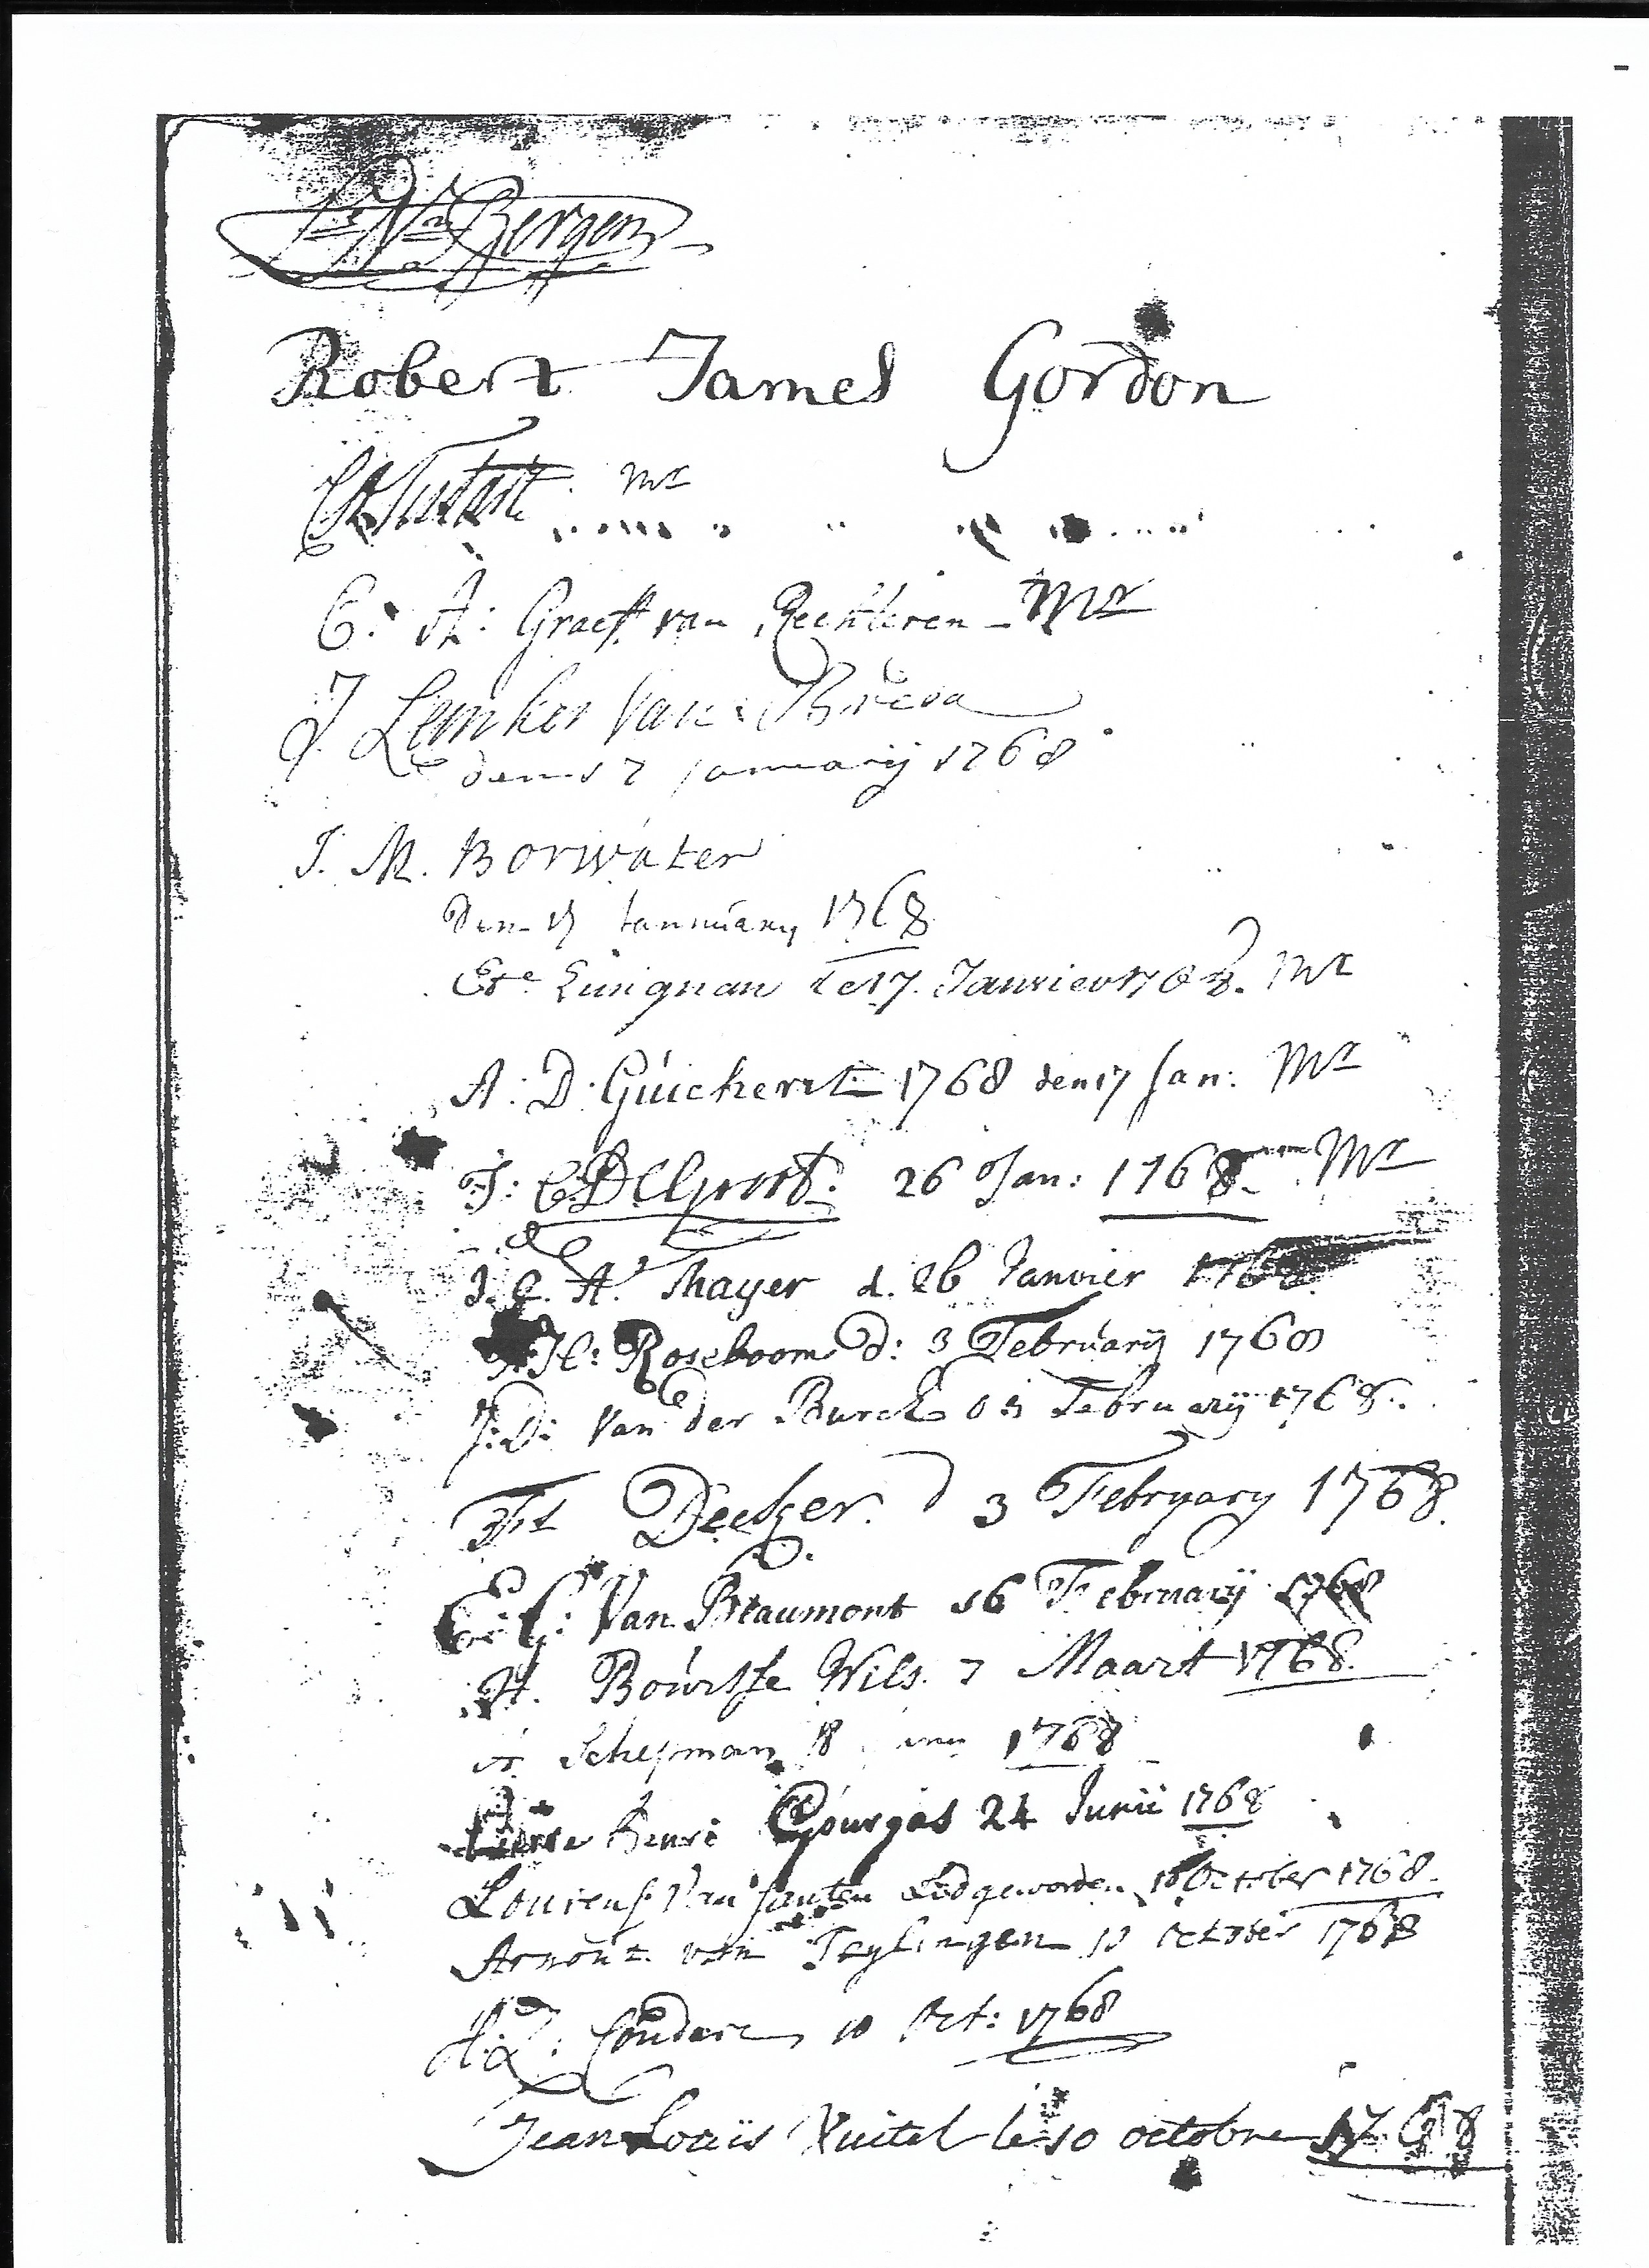 Bergen
Robert James Gordon
Mr
C: A: Graeff van Rechteren - Mr
J Lemker Van Breda
den 17 January 1768
J. M. Borwater
Den 17 Jannuary 1768
Ete Lusignan le 17. Janvier 1768. Mr
A: D: Guicherit 1768 den 17 Jan: Mr
J: C Delprat. 26 Jan: 1768. Mr
J. C. A. Thayer d. 26 Janvier 1768
H: Roseboom d: 3 February 1768
J: D: Van der Burch 03 February 1768.
Decker. d 3 February 1768.
E: C: Van Beaumont 16 February 1768
H. Bourssе Wils. 7 Maart 1768.
Schepman 18 1768
Pierre Henri Gourgas 24 Junii 1768
Lourens Van Santen Lid geworden 10 October 1768.
Arnout van Teylingen 10 October 1768
H: L: Couderc, 10 Oct: 1768
Jean Louis Xuitel le 10 octobre 1768